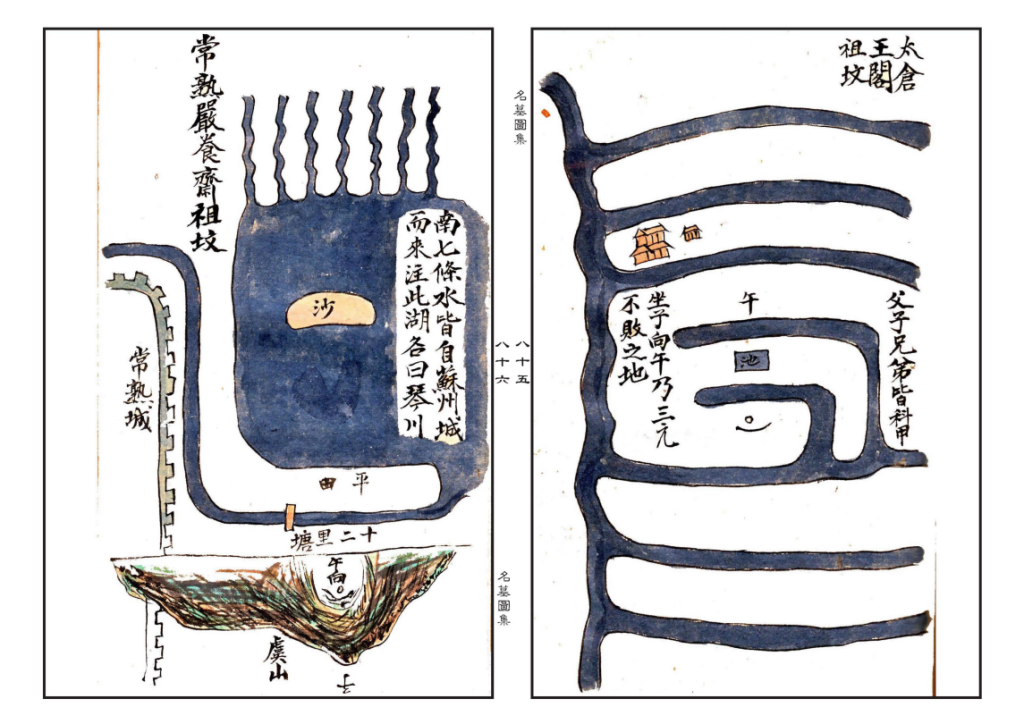 太倉
王閣
祖坟
父子兄第皆科甲
午
池
坐子向午乃三元
不敗之地
名墓圖集
八十五
常熟嚴養齋祖坟
南七條水皆自蘇州城
而來注此湖名曰琴川
沙
常熟城
平田
十二里塘
午向
虞山
子
名墓圖集
八十六